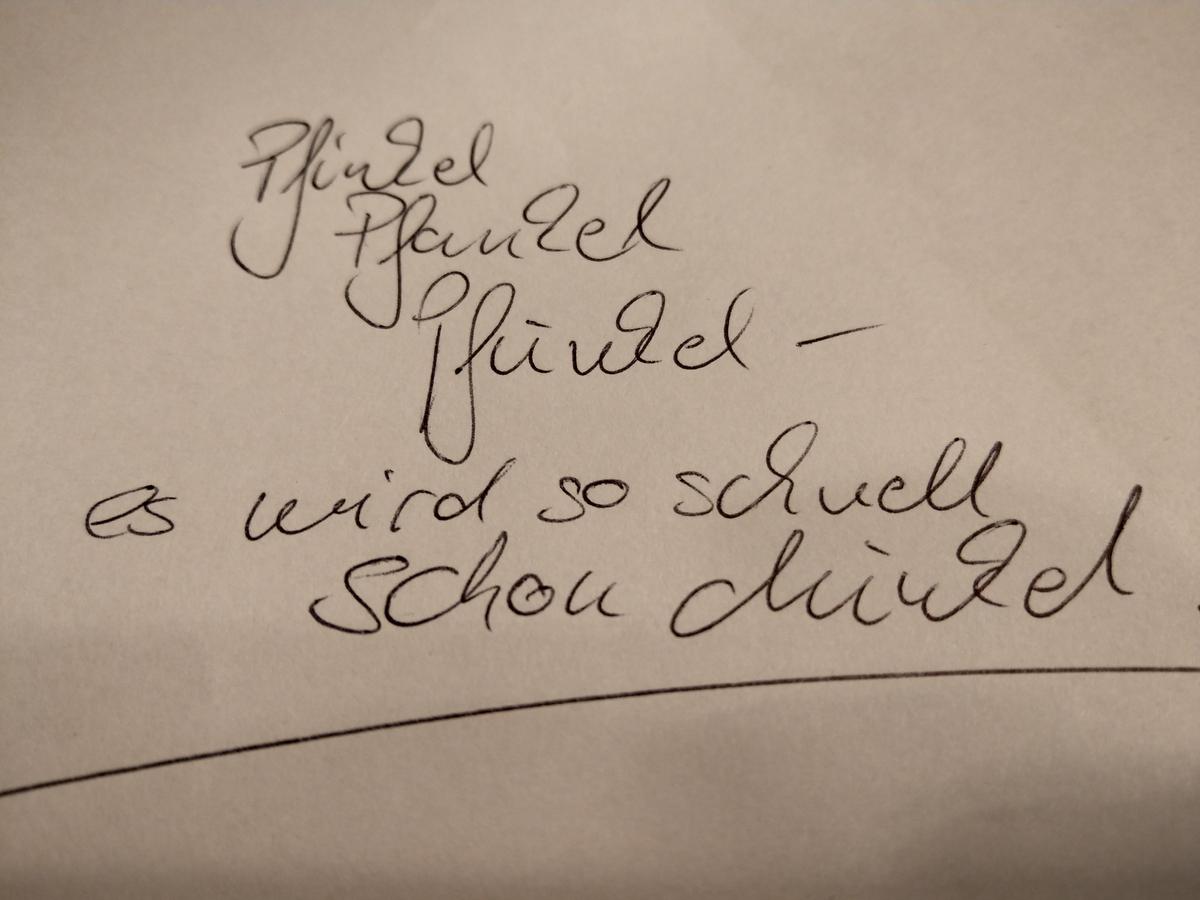 Pfinkel
Pfankel
Pfünkel –
es wird so schnell
schon dunkel.